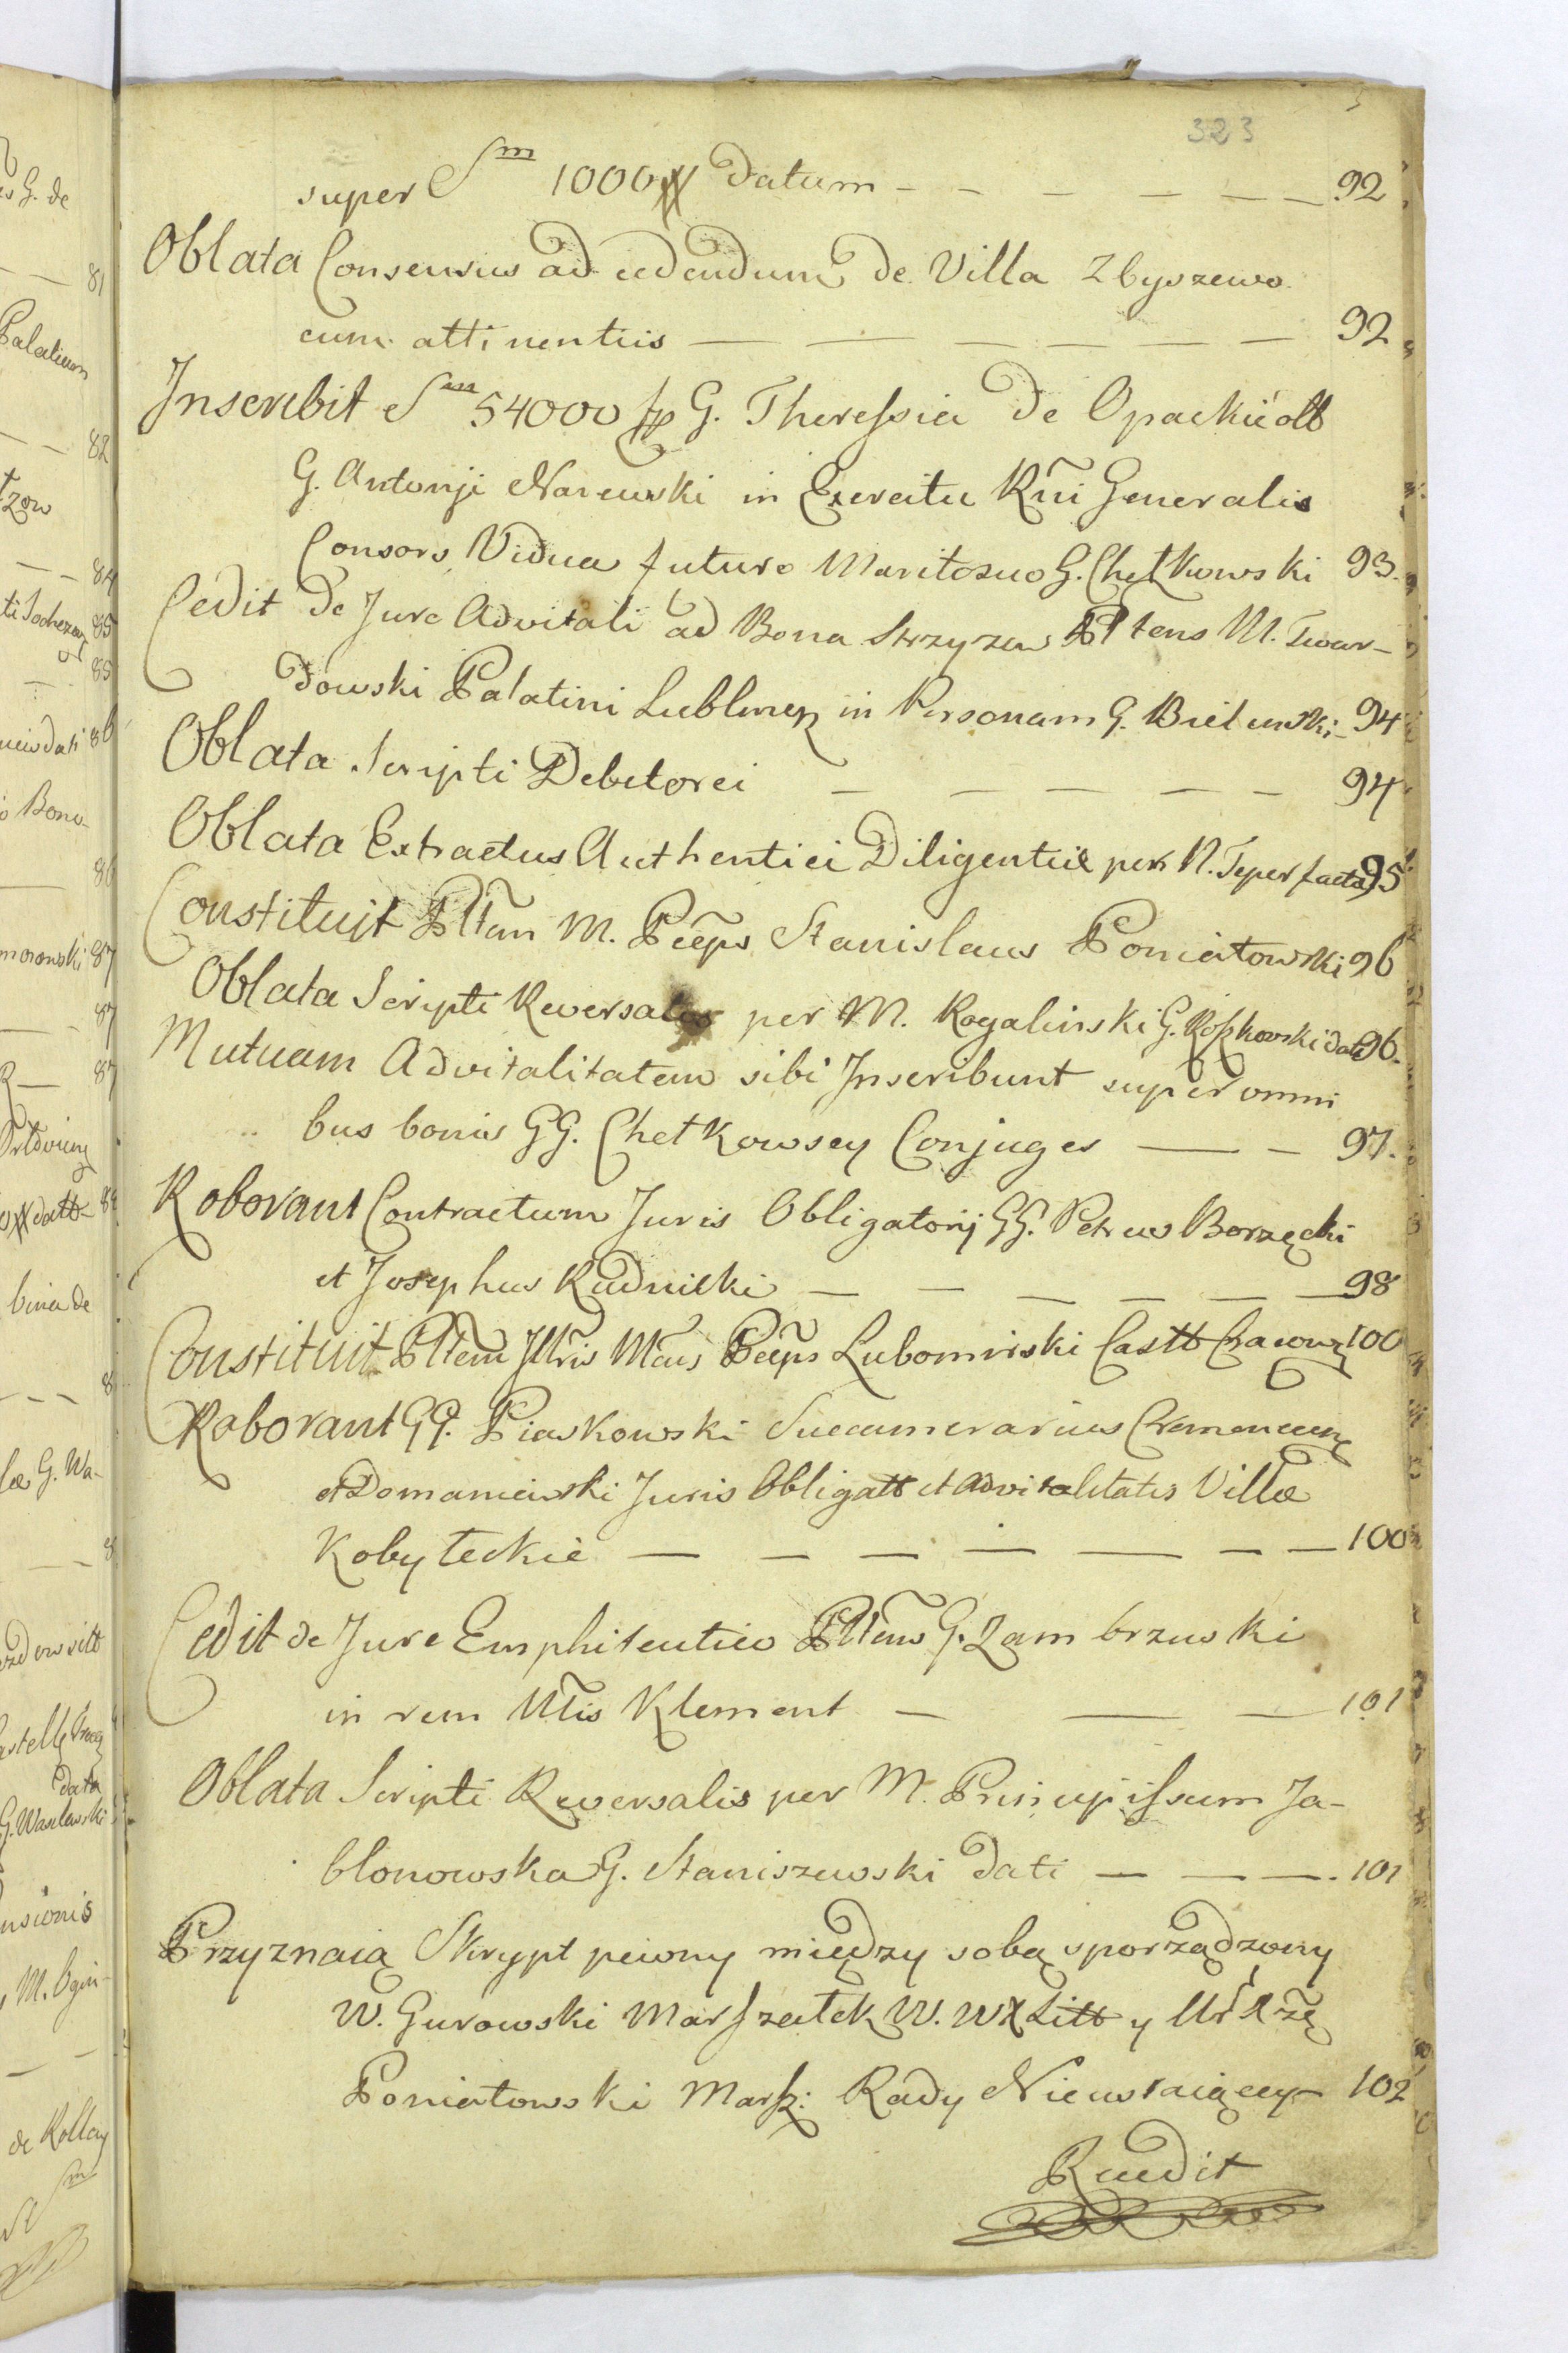 323
super Sm 1000 # datum - - - - - - 92
Oblata Consensus ad cedendum de Villa Zbyszewo
cum attinentiis - - - - - - 92
Inscribit Sm 54000 fp G. Theressia de Opackii olb
G. Antonji Narewski in Exercitu Rñi Generalis
Consors Vidua futuro Marito suo G. Chetkowski 93.
Cedit de Jure Advitali ad Bona Strzyzew Pltens M. Twar-
dowski Palatini Lublinen in Personam G. Bielewski - 94
Oblata Scripti Debitorei - - - - - 94
Oblata Extractus Authentici Diligentiæ per N. Teper facta 95
Constituit Pltem M. Pceps Stanislaus Poniatowski 96
Oblata Scripti Reversalis per M. Rogalinski G. Roszkowski dati 96.
Mutuam Advitalitatem sibi Inscribunt super omni
bus bonis GG. Chetkowscy Conjuges - - 97.
Roborant Contractum Juris Obligatorij GG. Petrus Borzęcki
et Josephus Rudnicki - - - - - - 98
Constituit Pltem Jllris Mcus Pceps Lubomirski Castt Cracov 100
Roborant GG. Piaskowski Succamerarius Cremenecen
et Domaniewski Juris Obligatt et Advitalitatis Villæ
Kobyteckie - - - - - - - 100
Cedit de Jure Emphiteutico Pltens G. Zambrzuski
in rem Nlis Klement - - - 101
Oblata Scripti Reversalis per M. Principissam Ja-
blonowska G. Staniszewski dati - - - 101
Przyznaią Skrypt pewny między sobą sporządzony
W. Gurowski Marszałek W. WX Litt y Xżę
Poniatowski Marsz: Rady Nieustaiącey - 102